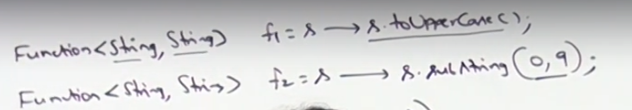 Function<String, String> f1 = s → s.toUpperCase();
Function<String, String> f2 = s → s.substring(0,9);